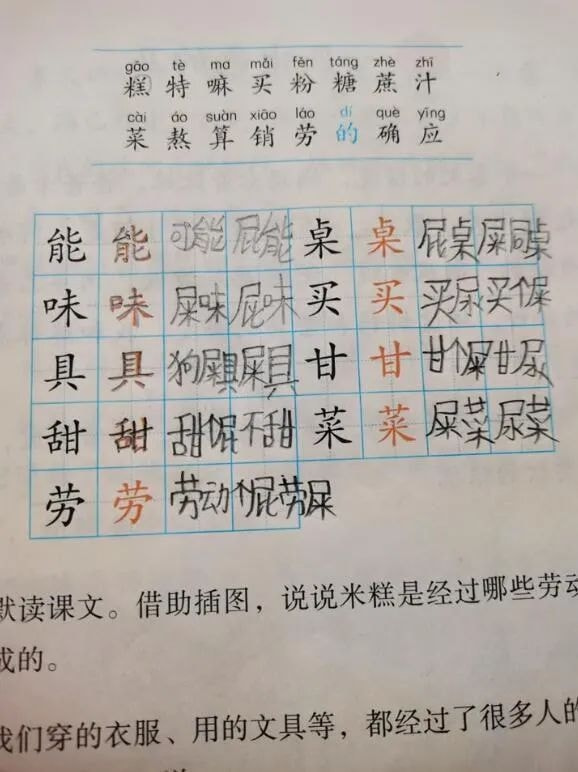 gāo tè ma mǎi fěn táng zhè zhī
糕 特 嘛 买 粉 糖 蔗 汁
cài áo suàn xiāo láo dí què yīng
菜 熬 算 销 劳 的 确 应
能 能 可能 屁能 桌 桌 屁桌 屎同桌
味 味 屎味 屁味 买 买 买尿 买个屎
具 具 狗屎具 屎具 甘 甘 甘个屎 甘尿
甜 甜 甜个屁 不甜 菜 菜 屎菜 尿菜
劳 劳 劳动个屁 劳屎
默读课文。借助插图，说说米糕是经过哪些劳动
成的。
我们穿的衣服、用的文具等，都经过了很多人的